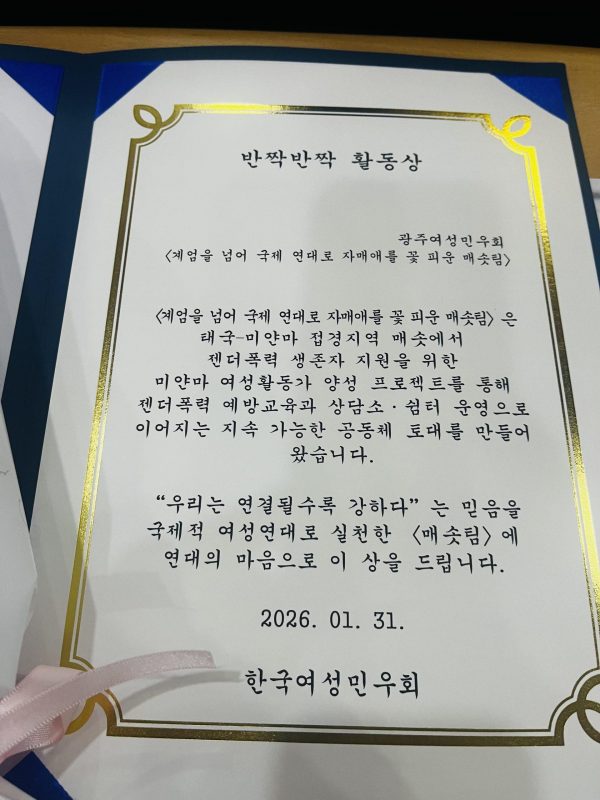 반짝반짝 활동상
광주여성민우회
〈계엄을 넘어 국제 연대로 자매애를 꽃 피운 매솟팀〉
〈계엄을 넘어 국제 연대로 자매애를 꽃 피운 매솟팀〉은
태국-미얀마 접경지역 매솟에서
젠더폭력 생존자 지원을 위한
미얀마 여성활동가 양성 프로젝트를 통해
젠더폭력 예방교육과 상담소·쉼터 운영으로
이어지는 지속 가능한 공동체 토대를 만들어
왔습니다.
“우리는 연결될수록 강하다” 는 믿음을
국제적 여성연대로 실천한 〈매솟팀〉에
연대의 마음으로 이 상을 드립니다.
2026. 01. 31.
한국여성민우회